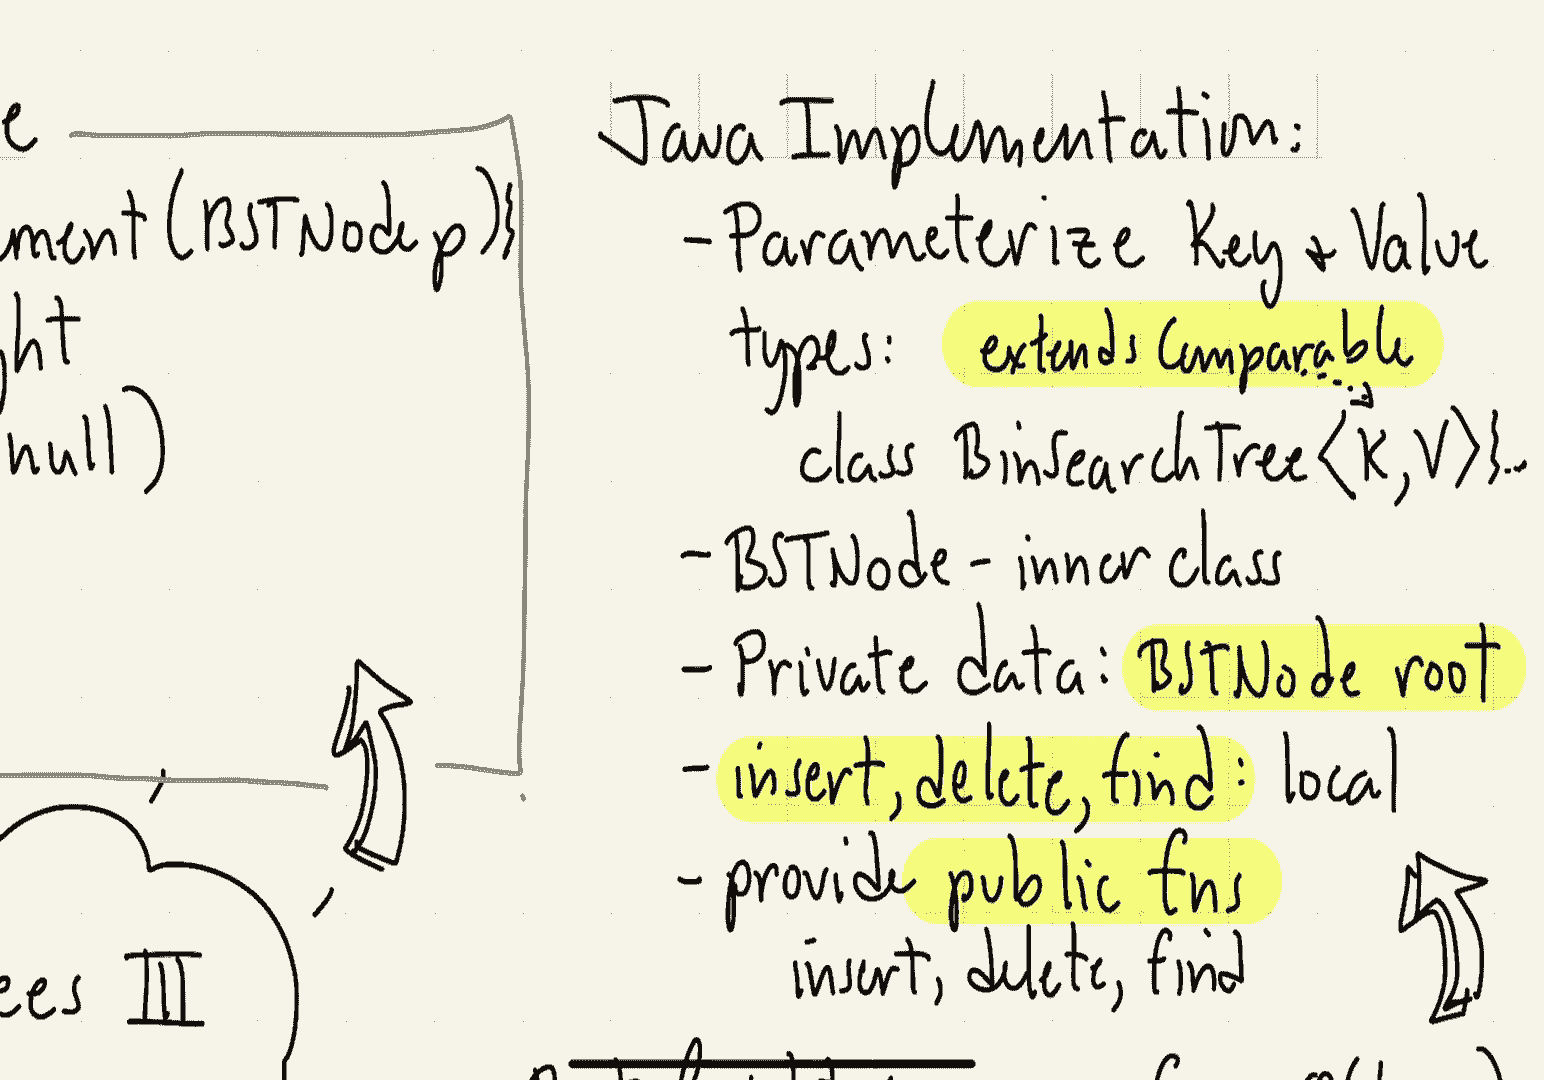 e
ment(BSTNode p){
ht
null)
ees III
Java Implementation:
- Parameterize Key & Value
types: extends Comparable
class BinSearchTree<K,V>{...
- BSTNode - inner class
- Private data: BSTNode root
- insert, delete, find: local
- provide public fns
insert, delete, find